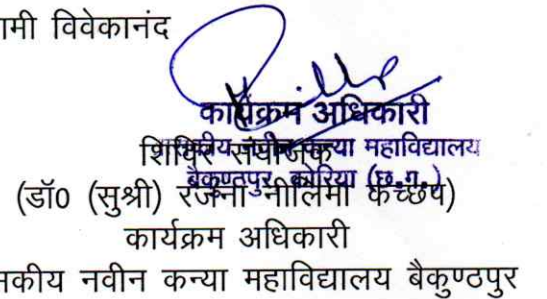 ामी विवेकानंद
कार्यक्रम अधिकारी
शासकीय नवीन कन्या महाविद्यालय
शिविर संयोजक
बैकुण्ठपुर, कोरिया (छ.ग.)
(डॉ0 (सुश्री) रजनी नीलिमा कच्छप)
कार्यक्रम अधिकारी
सकीय नवीन कन्या महाविद्यालय बैकुण्ठपुर